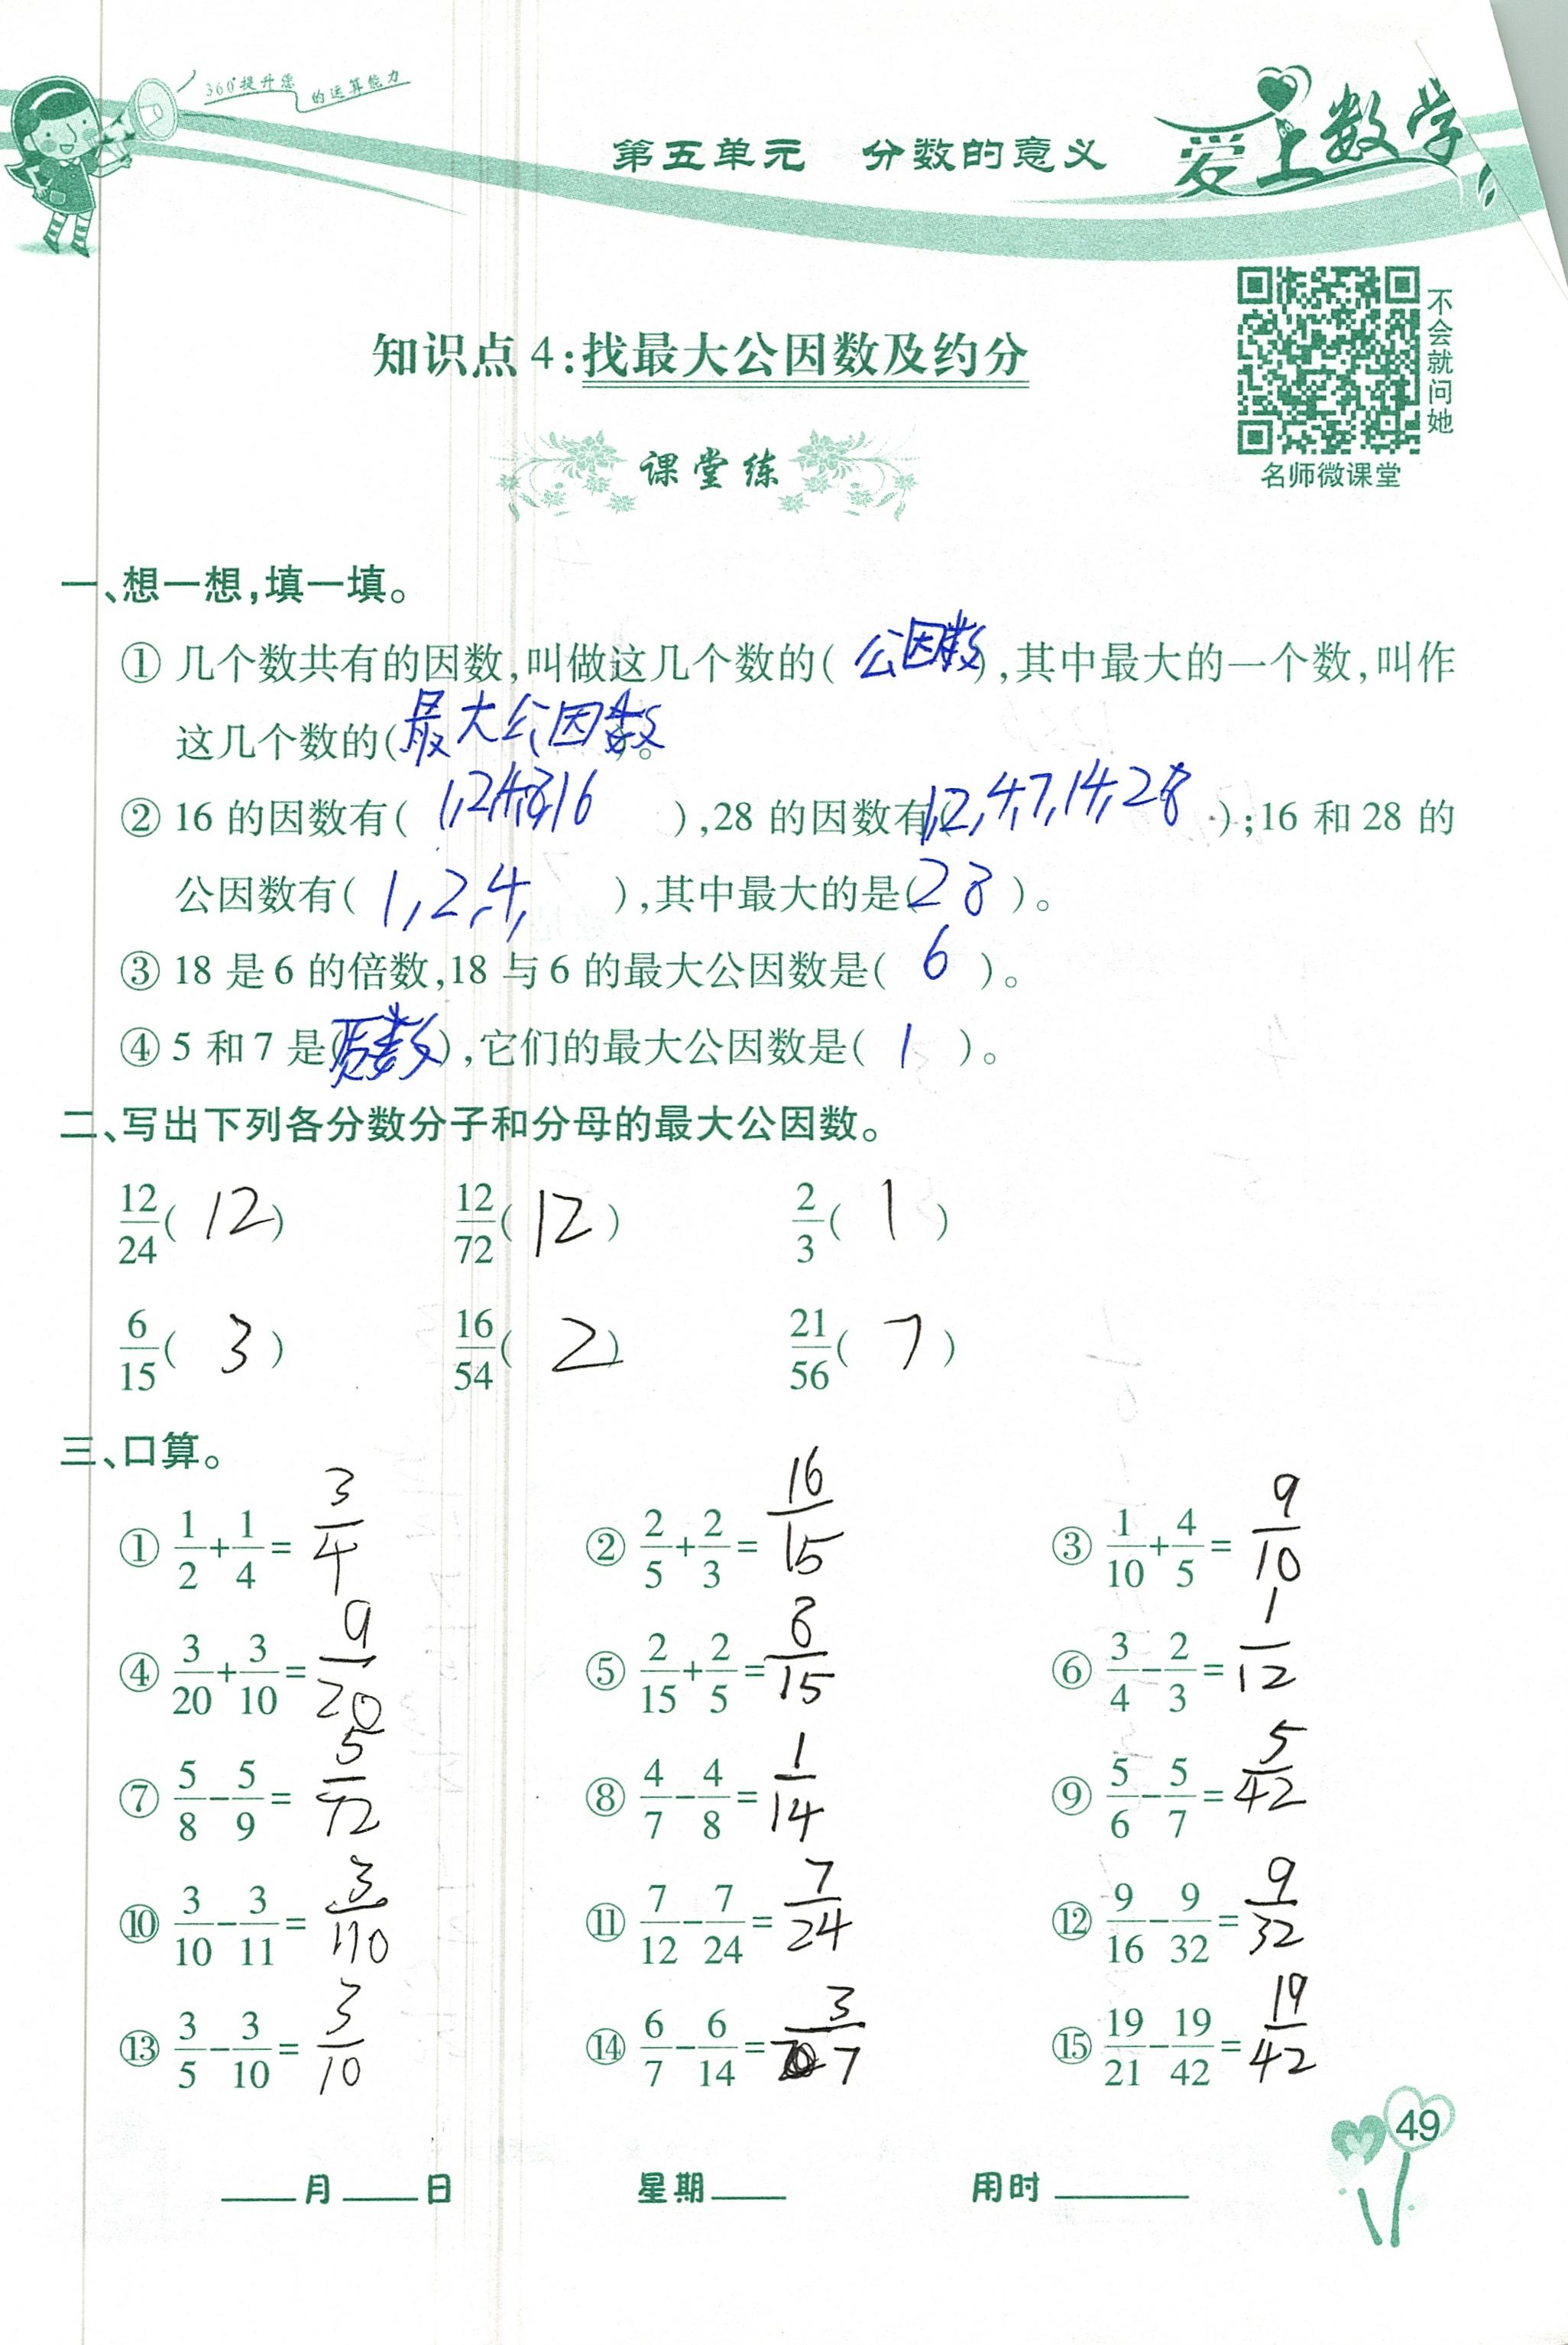 360°提升您的运算能力
第五单元 分数的意义 爱上数学
不会就问她
名师微课堂
知识点 4:找最大公因数及约分
课堂练
一、想一想,填一填。
① 几个数共有的因数,叫做这几个数的( 公因数 ),其中最大的一个数,叫作
这几个数的(最大公因数)。
② 16 的因数有( 1,2,4,8,16 ),28 的因数有(1,2,4,7,14,28);16 和 28 的
公因数有( 1,2,4, ),其中最大的是(28)。
③ 18 是 6 的倍数,18 与 6 的最大公因数是( 6 )。
④ 5 和 7 是(质数),它们的最大公因数是( 1 )。
二、写出下列各分数分子和分母的最大公因数。
12/24( 12 ) 12/72( 12 ) 2/3( 1 )
6/15( 3 ) 16/54( 2 ) 21/56( 7 )
三、口算。
① 1/2+1/4= 3/4 ② 2/5+2/3= 16/15 ③ 1/10+4/5= 9/10
④ 3/20+3/10= 9/20 ⑤ 2/15+2/5= 8/15 ⑥ 3/4-2/3= 1/12
⑦ 5/8-5/9= 5/72 ⑧ 4/7-4/8= 1/14 ⑨ 5/6-5/7= 5/42
⑩ 3/10-3/11= 3/110 ⑪ 7/12-7/24= 7/24 ⑫ 9/16-9/32= 9/32
⑬ 3/5-3/10= 3/10 ⑭ 6/7-6/14= 3/7 ⑮ 19/21-19/42= 19/42
49
____月____日 星期____ 用时____